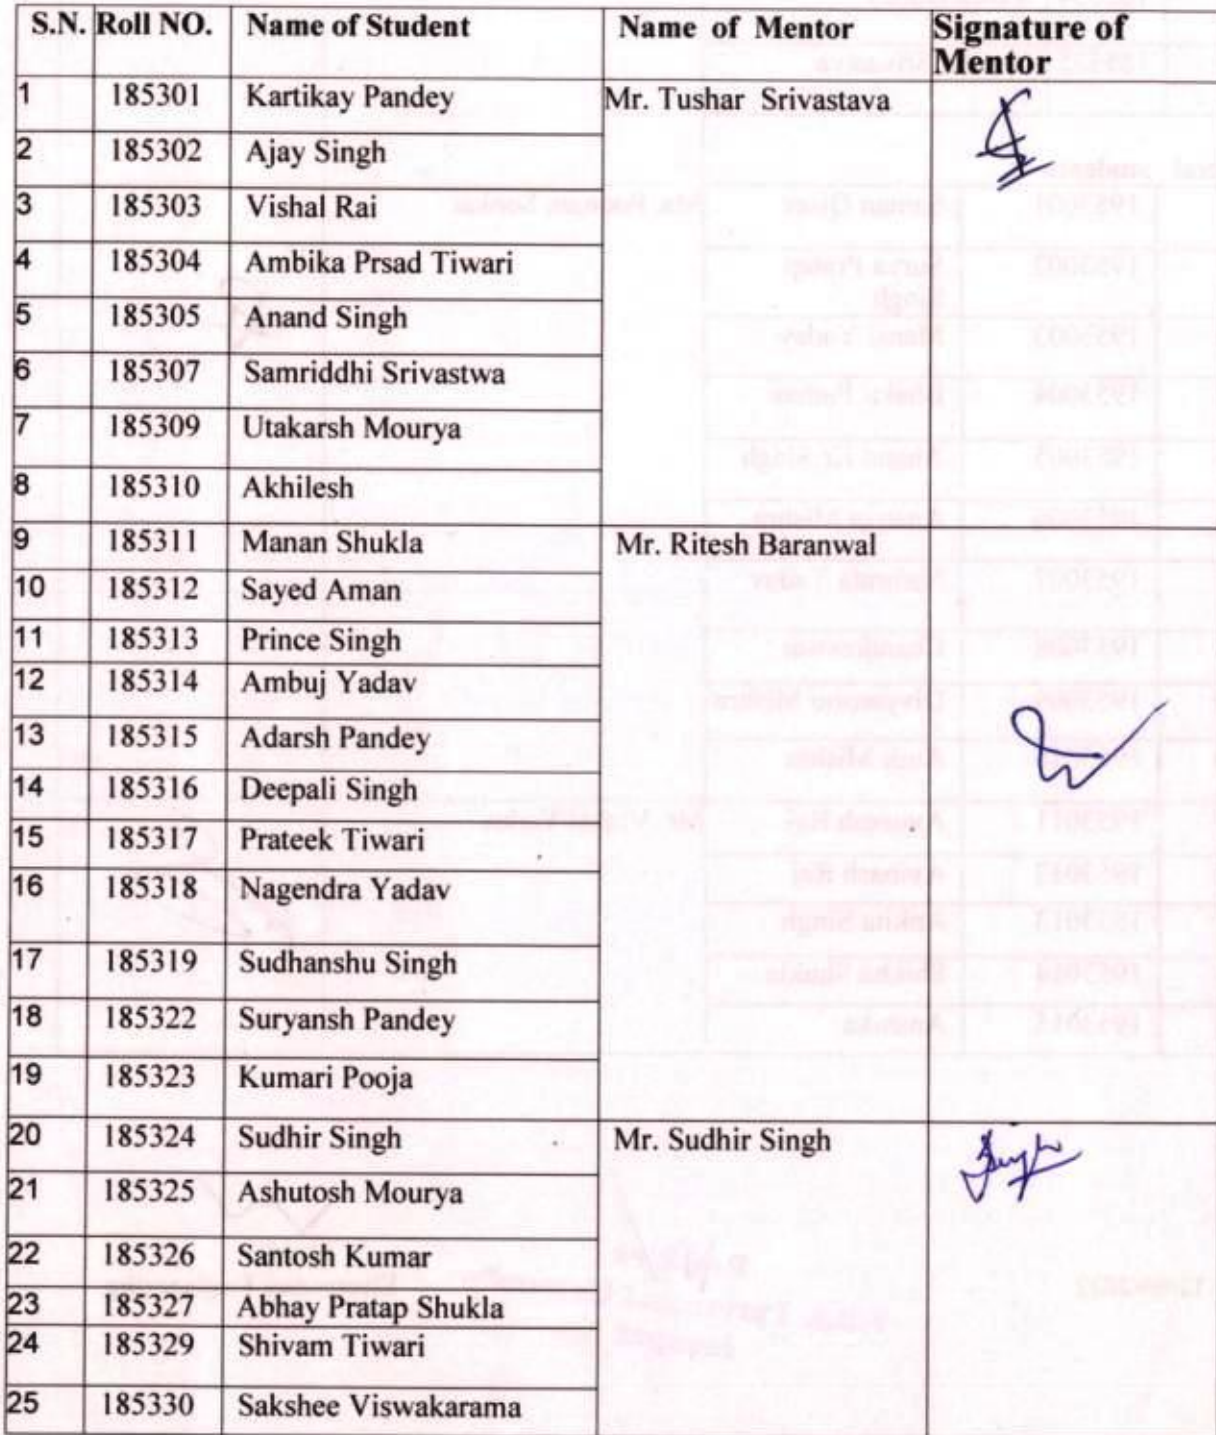 S.N. Roll NO. Name of Student Name of Mentor Signature of Mentor
1 185301 Kartikay Pandey Mr. Tushar Srivastava
2 185302 Ajay Singh
3 185303 Vishal Rai
4 185304 Ambika Prsad Tiwari
5 185305 Anand Singh
6 185307 Samriddhi Srivastwa
7 185309 Utakarsh Mourya
8 185310 Akhilesh
9 185311 Manan Shukla Mr. Ritesh Baranwal
10 185312 Sayed Aman
11 185313 Prince Singh
12 185314 Ambuj Yadav
13 185315 Adarsh Pandey
14 185316 Deepali Singh
15 185317 Prateek Tiwari
16 185318 Nagendra Yadav
17 185319 Sudhanshu Singh
18 185322 Suryansh Pandey
19 185323 Kumari Pooja
20 185324 Sudhir Singh Mr. Sudhir Singh
21 185325 Ashutosh Mourya
22 185326 Santosh Kumar
23 185327 Abhay Pratap Shukla
24 185329 Shivam Tiwari
25 185330 Sakshee Viswakarama